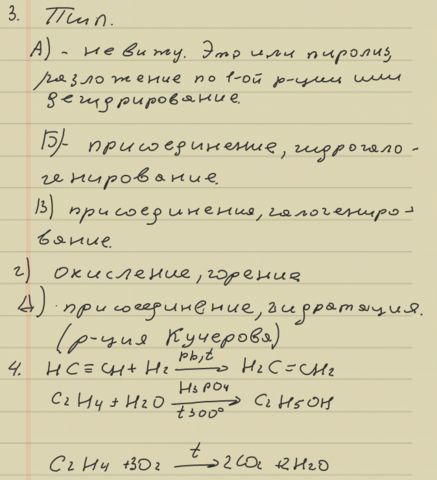 3. Тип.
А) - не вижу. Это или пиролиз,
разложение по 1-ой р-ции или
дегидрирование.
Б)- присоединение, гидрогало-
генирование.
В) присоединения, галогениро-
вание.
г) окисление, горения
Д) присоединение, гидратация.
(р-ция Кучерова)
4. HC≡CH + H2 pb,t → H2C=CH2
C2H4 + H2O H3PO4 t300° → C2H5OH
C2H4 + 3O2 t → 2CO2 + 2H2O